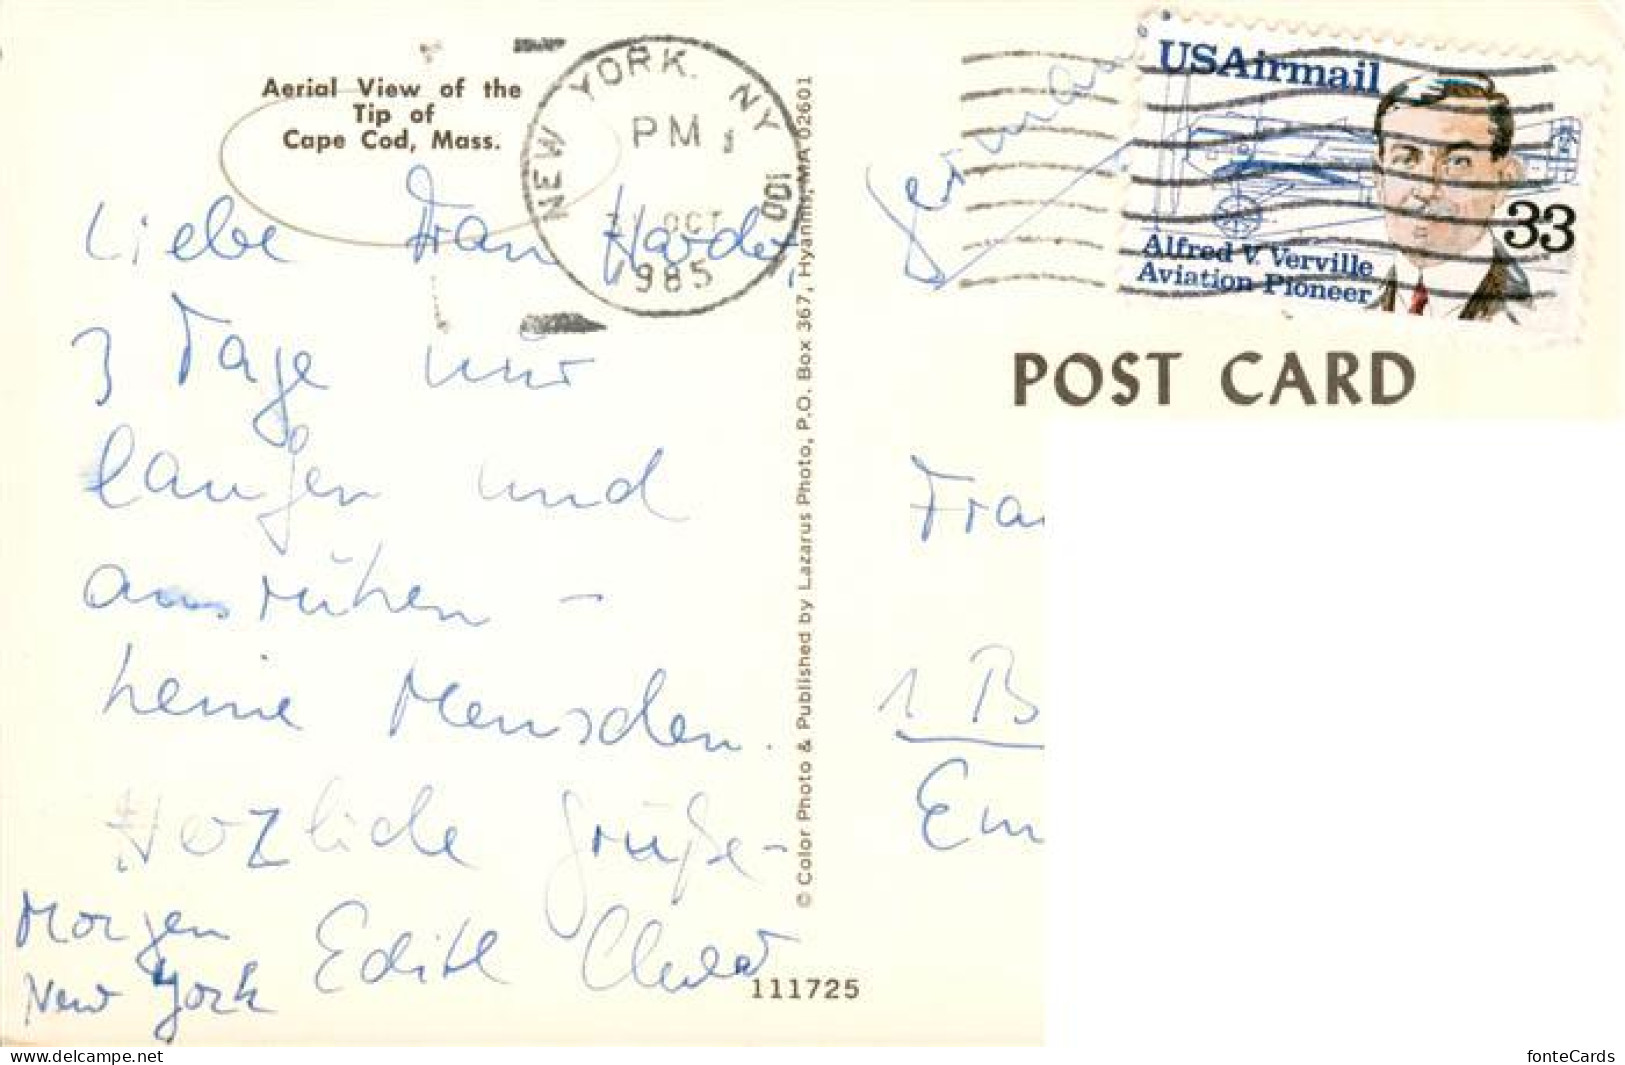 Aerial View of the
Tip of
Cape Cod, Mass.
NEW YORK, NY 001
PM
OCT
1985
USAirmail
33
Alfred V. Verville
Aviation Pioneer
Germany
POST CARD
Liebe Frau Harder,
3 Tage nur
laufen und
ausruhen –
keine Menschen.
Herzliche Grüße –
Edith
Morgen
New York
© Color Photo & Published by Lazarus Photo, P.O. Box 367, Hyannis, MA 02601
111725
Frau
1 B
Em
delcampe.net
fonteCards